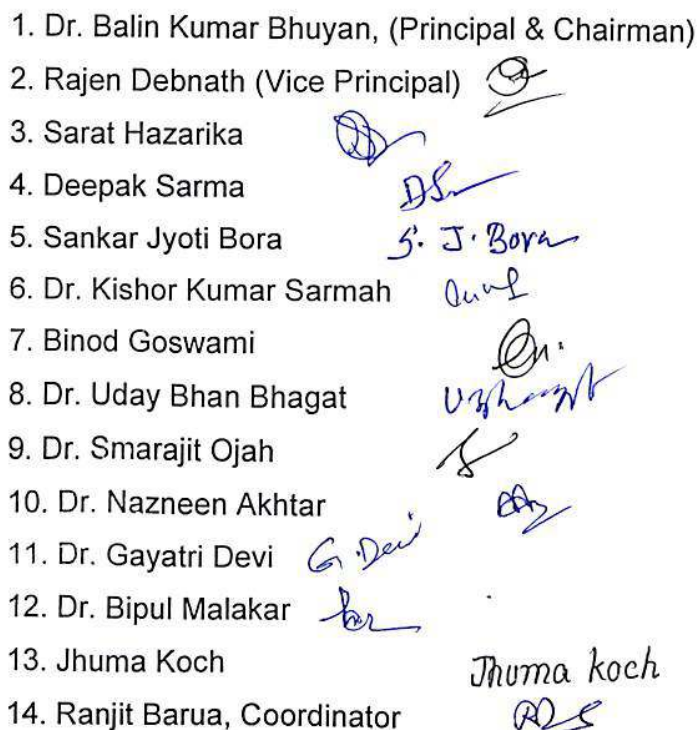 1. Dr. Balin Kumar Bhuyan, (Principal & Chairman)
2. Rajen Debnath (Vice Principal)
3. Sarat Hazarika
4. Deepak Sarma
5. Sankar Jyoti Bora S. J. Bora
6. Dr. Kishor Kumar Sarmah
7. Binod Goswami
8. Dr. Uday Bhan Bhagat
9. Dr. Smarajit Ojah
10. Dr. Nazneen Akhtar
11. Dr. Gayatri Devi G. Devi
12. Dr. Bipul Malakar
13. Jhuma Koch Jhuma koch
14. Ranjit Barua, Coordinator